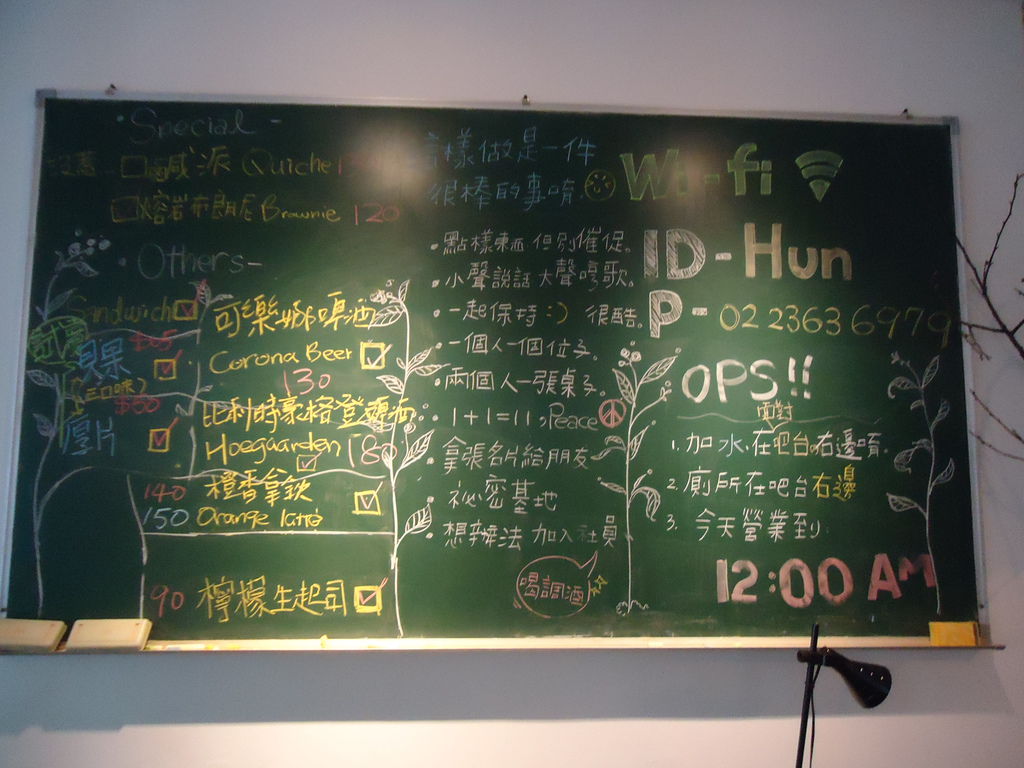 • Special -
鹹派 Quiche
熔岩布朗尼 Brownie 120
• Others -
Sandwich
貝果
$50
厚片
可樂娜啤酒
Corona Beer
130
比利時豪格登啤酒
Hoegaarden 180
140 橙香拿鉄
150 Orange latte
90 檸檬生起司
這樣做是一件
很棒的事唷
• 點樣東西 但別催促。
• 小聲說話 大聲哼歌。
• 一起保持:) 很酷。
• 一個人一個位子。
• 兩個人一張桌子。
• 1+1=11, Peace
• 拿張名片給朋友
• 祕密基地
• 想辦法 加入社員
喝調酒
Wi-fi
ID-Hun
P-02 2363 6979
OPS!!
面對
1. 加水在吧台右邊唷.
2. 廁所在吧台右邊
3. 今天營業到:
12:00 AM